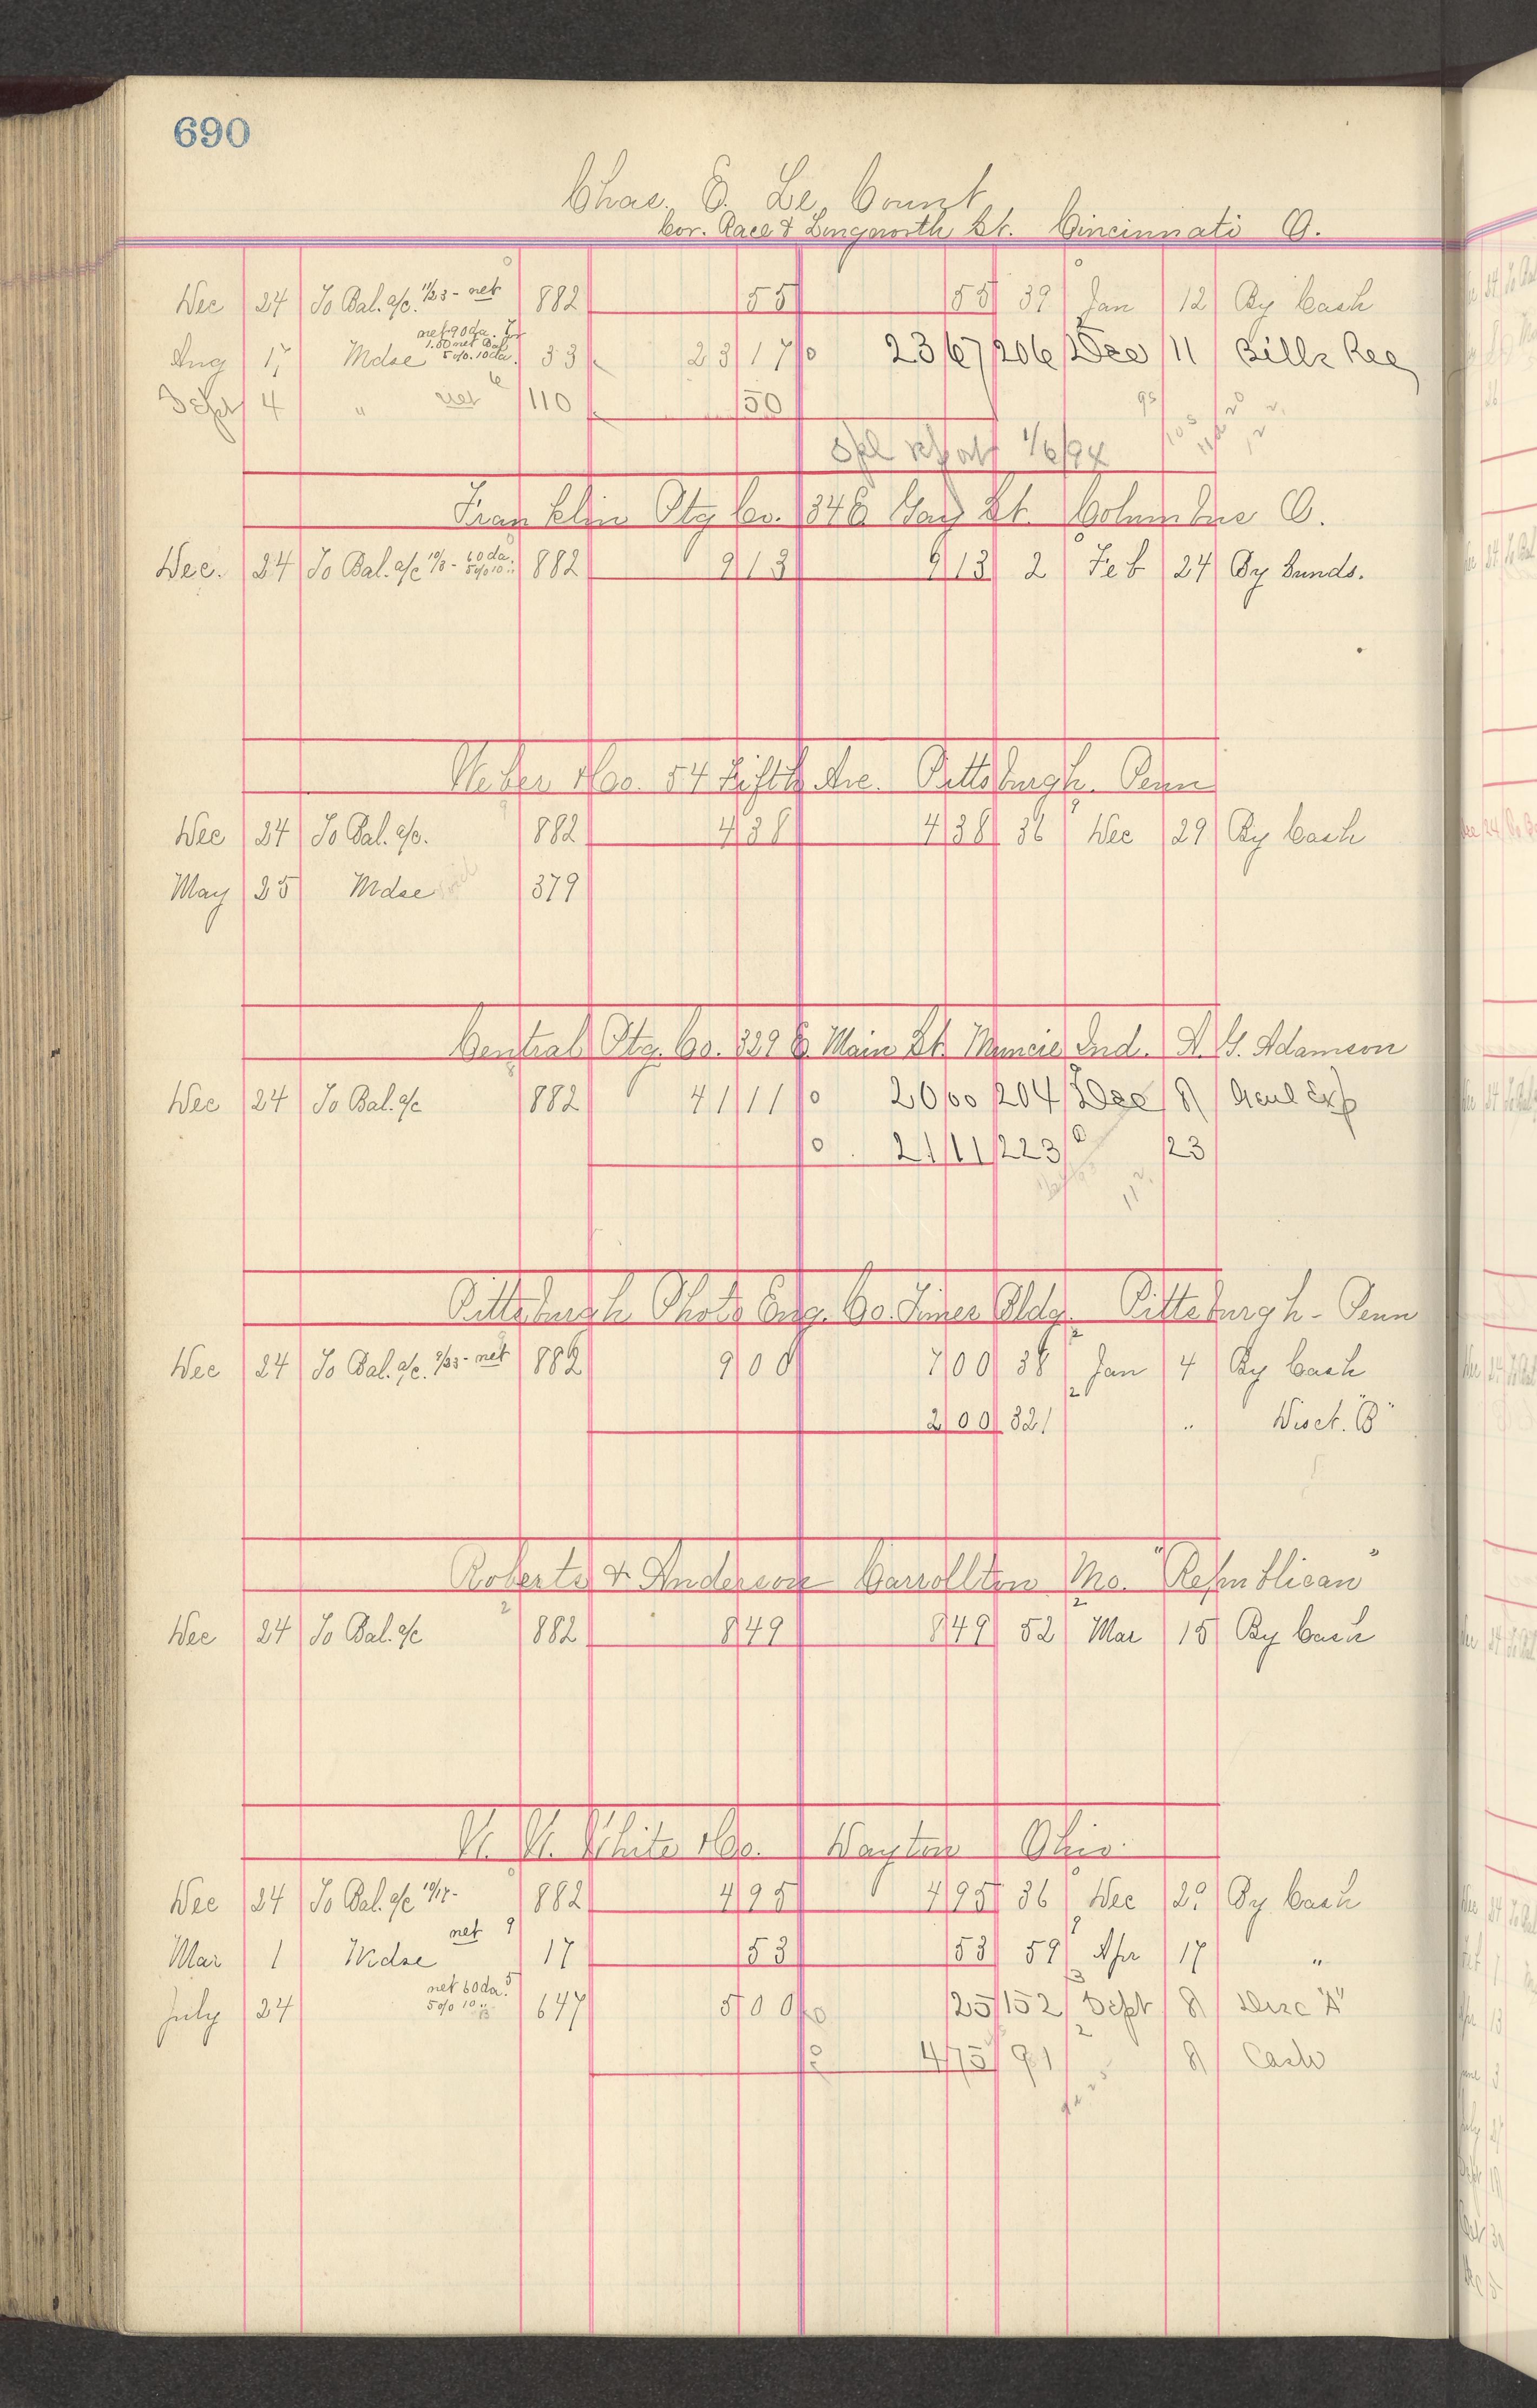 690
Chas. E. Le Count
Cor. Race & Longworth St. Cincinnati O.
Dec 24 To Bal. a/c. 11/23 - net 882 55 55 39 Jan 12 By Cash
net 90 da.
1.50 net
Aug 17 Mdse 5% 10 da. 33 23 17 23 67 206 Dec 11 Bills Rec
Sept 4 " net 110 50
1/6/94
Franklin Ptg Co. 34 E Gay St. Columbus O.
Dec. 24 To Bal. a/c 10/3 - 60 da. 5% 10 " 882 9 13 9 13 2 Feb 24 By Sunds.
Weber & Co. 54 Fifth Ave. Pittsburgh. Penn
Dec 24 To Bal. a/c. 882 4 38 4 38 36 Dec 29 By Cash
May 25 Mdse 379
Central Ptg. Co. E. Main St. Muncie Ind. Adamson
Dec 24 To Bal. a/c 882 41 11 20 00 204 Dec 8
21 11 223 23
Pittsburgh Photo Eng. Co. Times Bldg. Pittsburgh - Penn
Dec 24 To Bal. a/c. - net 882 9 00 7 00 38 Jan 4 By Cash
2 00 321 " Disct. "B"
Roberts & Anderson Carrollton Mo. "Republican"
Dec 24 To Bal. a/c 882 8 49 8 49 52 Mar 15 By Cash
White & Co. Dayton Ohio.
Dec 24 To Bal. a/c 882 4 95 4 95 36 Dec 29 By Cash
net
Mar 1 Mdse 17 53 53 59 Apr 17 "
net 60 da.
July 24 5% 10 " 647 5 00 25 152 Sept 8 Disc "A"
4 75 91 8 Cash